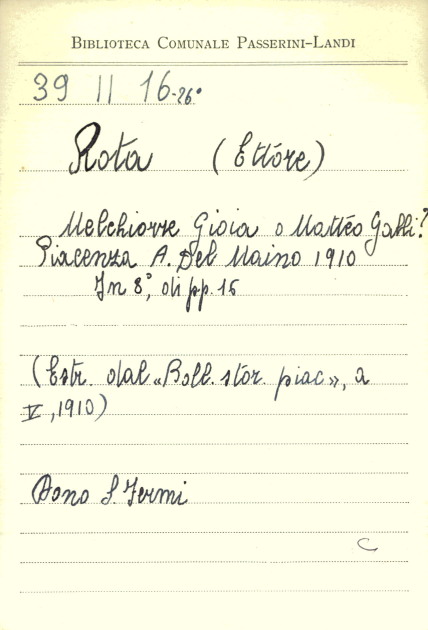 BIBLIOTECA COMUNALE PASSERINI-LANDI
39 II 16-26°
Rota (Ettóre)
Melchiorre Gioia o Mattéo Galli?
Piacenza A. Del Maino 1910
In 8°, di pp. 16
(Estr. dal «Boll. stor. piac», a
V, 1910)
Dono S. Fermi
C